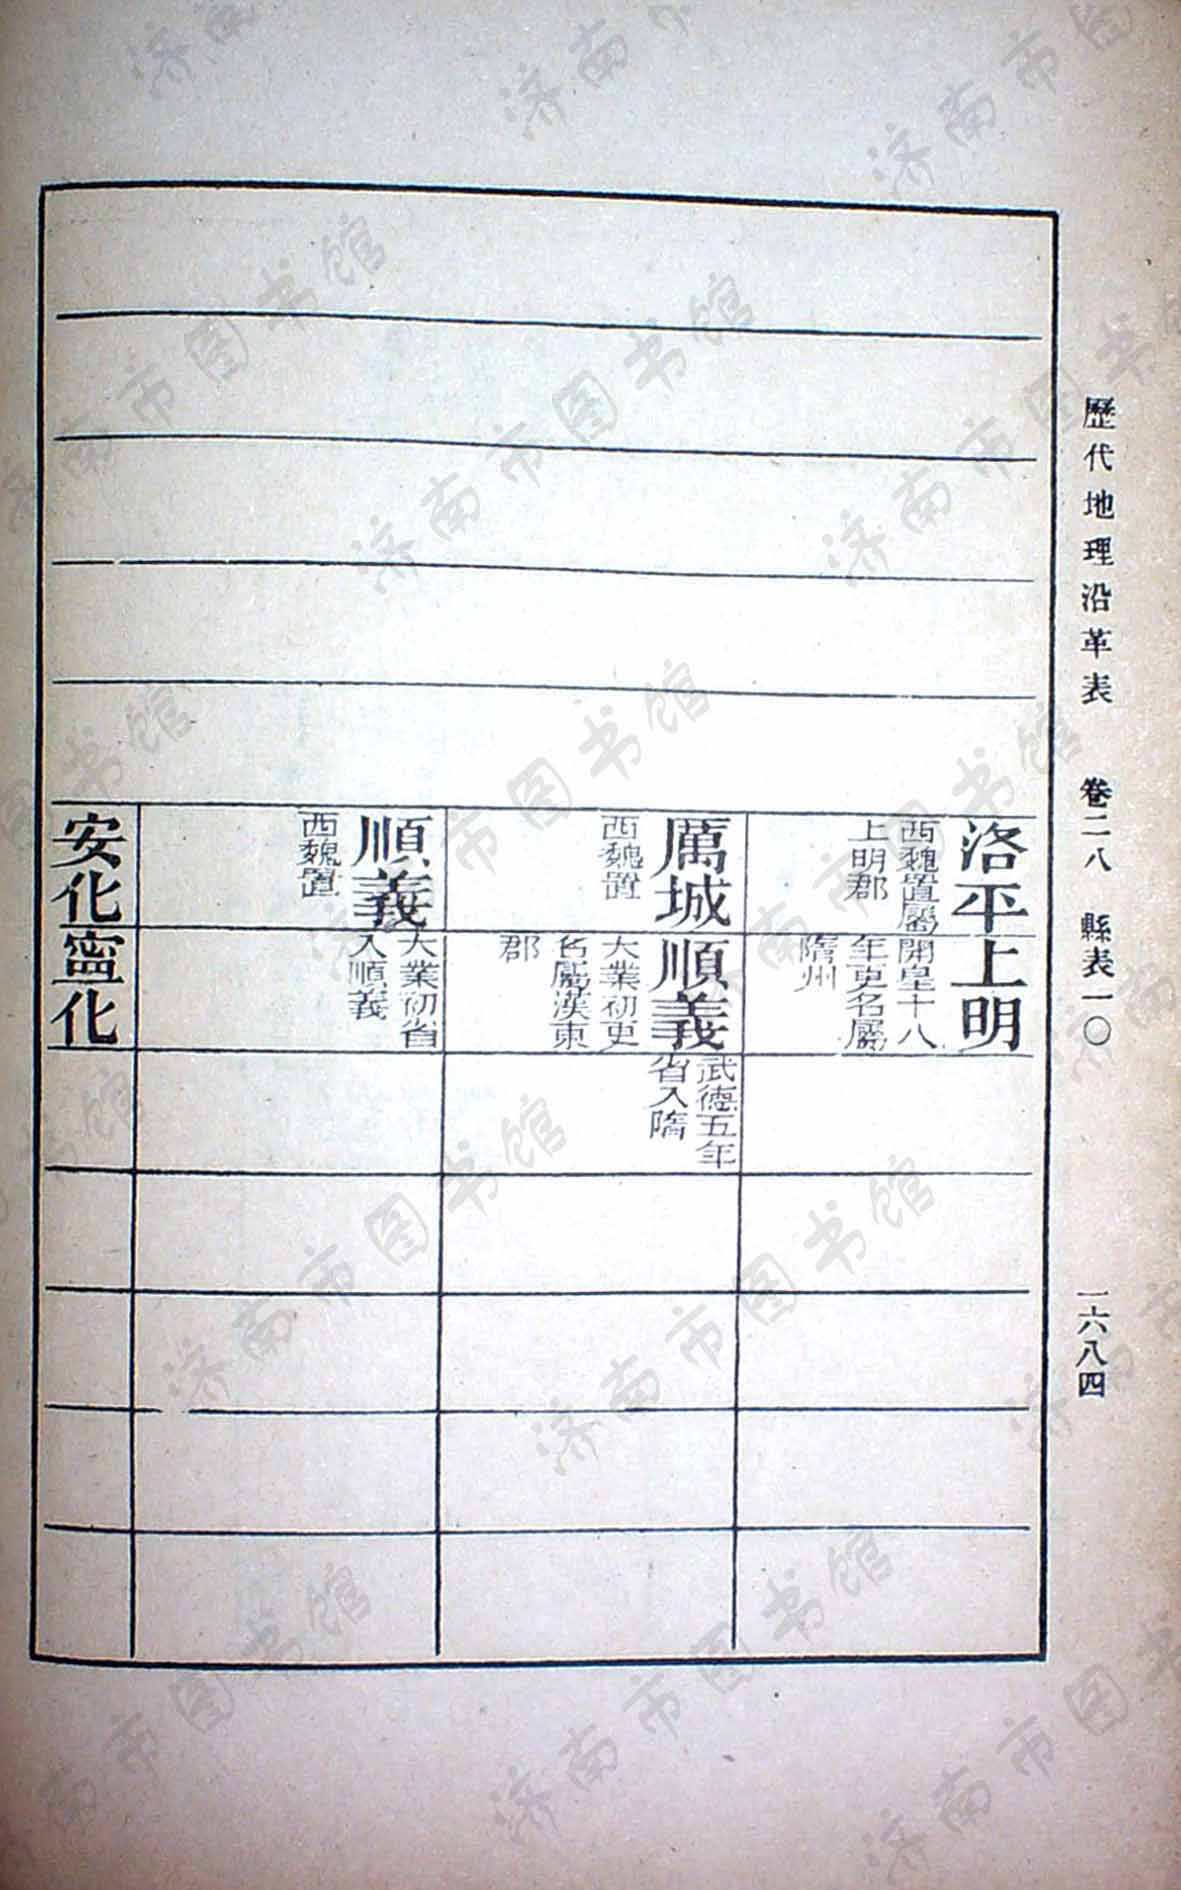 歷代地理沿革表　卷二八　縣表一〇　一六八四
洛平
西魏置屬
上明郡
上明
開皇十八
年更名屬
隋州
厲城
西魏置
順義
大業初更
名屬漢東
郡
武德五年
省入隋
順義
西魏置
大業初省
入順義
安化
寍化
济南市图书馆